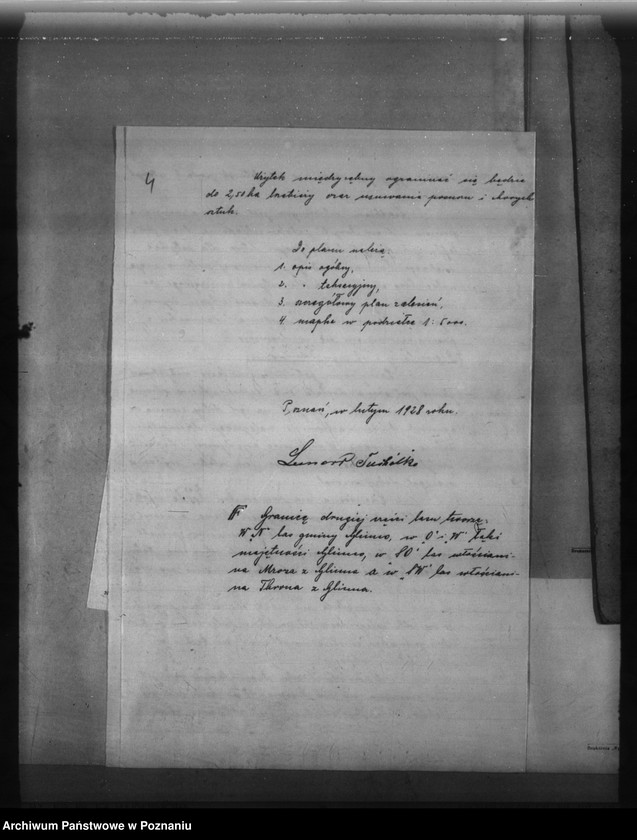 4
Użytek międzyrębny ograniczać się będzie
do 2,50 ha trzebieży oraz usuwania posuszu i chorych
sztuk.
Do planu należą:
1. opis ogólny,
2. " taksacyjny,
3. szczegółowy plan zalesień,
4. mapka w podziałce 1:5000.
Poznań, w lutym 1928 roku.
Leonard
Granicę drugiej części lasu tworzą:
W N las gminy Glinno, w O i W łąki
majętności Glinno, w SO las włościani-
na Mroza z Glinna a w SW las włościani-
na Throna z Glinna.
Archiwum Państwowe w Poznaniu